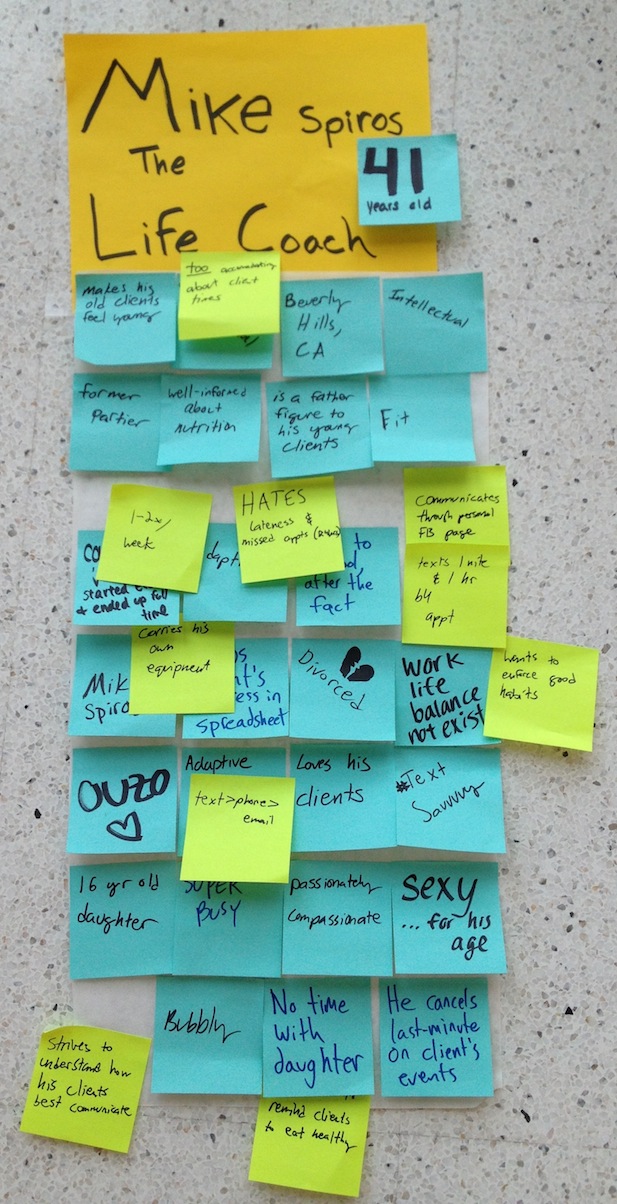 Mike Spiros
The
Life Coach
41
years old
makes his
old clients
feel young
too accommodating
about client
times
Beverly
Hills,
CA
Intellectual
former
Partier
well-informed
about
nutrition
is a father
figure to
his young
clients
Fit
1-2x/
week
HATES
Lateness &
missed appts
Communicates
through personal
FB page
started
& ended up full
time
to
after the
fact
texts 1 nite
& 1 hr
b4
appt
Carries his
own
equipment
Mik
Spiro
spreadsheet
Divorced
Work
life
balance
not exist
wants to
enforce good
habits
OUZO
Adaptive
text>phone>
email
Loves his
clients
#Text
Savvvy
16 yr old
daughter
SUPER
BUSY
passionately
compassionate
Sexy
...for his
age
Bubbly
No time
with
daughter
He cancels
last-minute
on client's
events
Strives to
understand how
his clients
best communicate
remind clients
to eat healthy